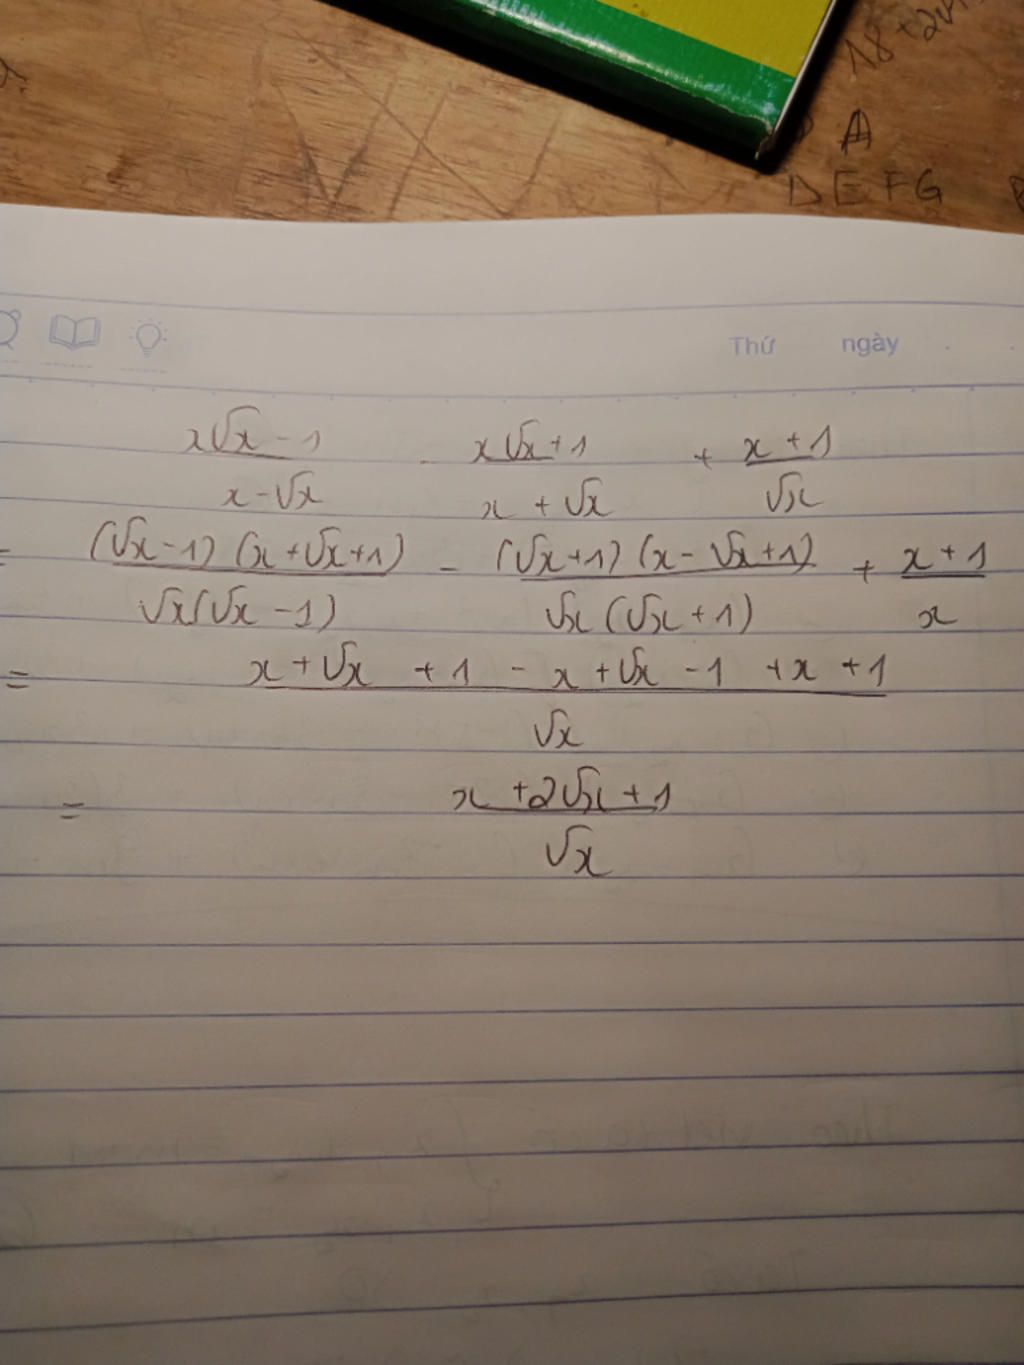 18+2√
A
D E F G
Thứ ngày
x√x - 1 / x - √x - x√x + 1 / x + √x + x + 1 / √x
= (√x - 1) (x + √x + 1) / √x(√x - 1) - (√x + 1) (x - √x + 1) / √x (√x + 1) + x + 1 / x
= x + √x + 1 - x + √x - 1 + x + 1 / √x
= x + 2√x + 1 / √x